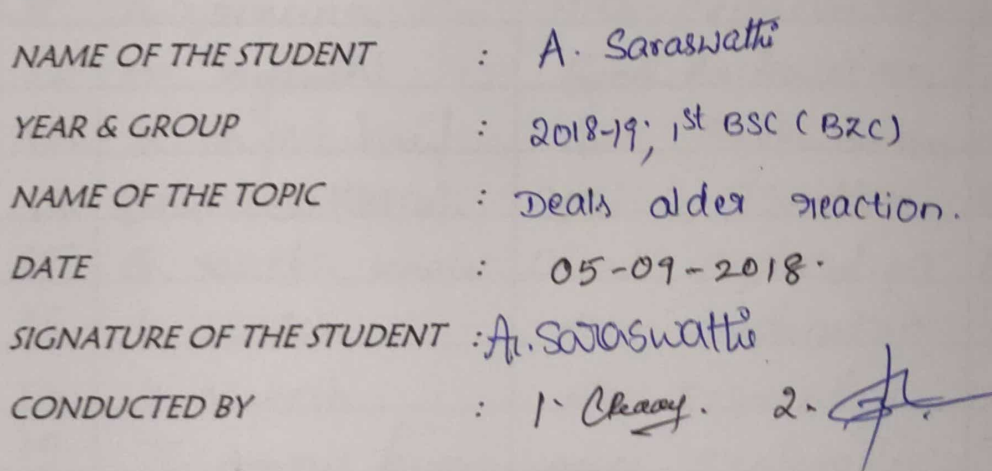 NAME OF THE STUDENT : A. Saraswathi
YEAR & GROUP : 2018-19; 1st BSC (BZC)
NAME OF THE TOPIC : Deals alder reaction.
DATE : 05-09-2018.
SIGNATURE OF THE STUDENT : A. Saraswathi
CONDUCTED BY : 1. 2.